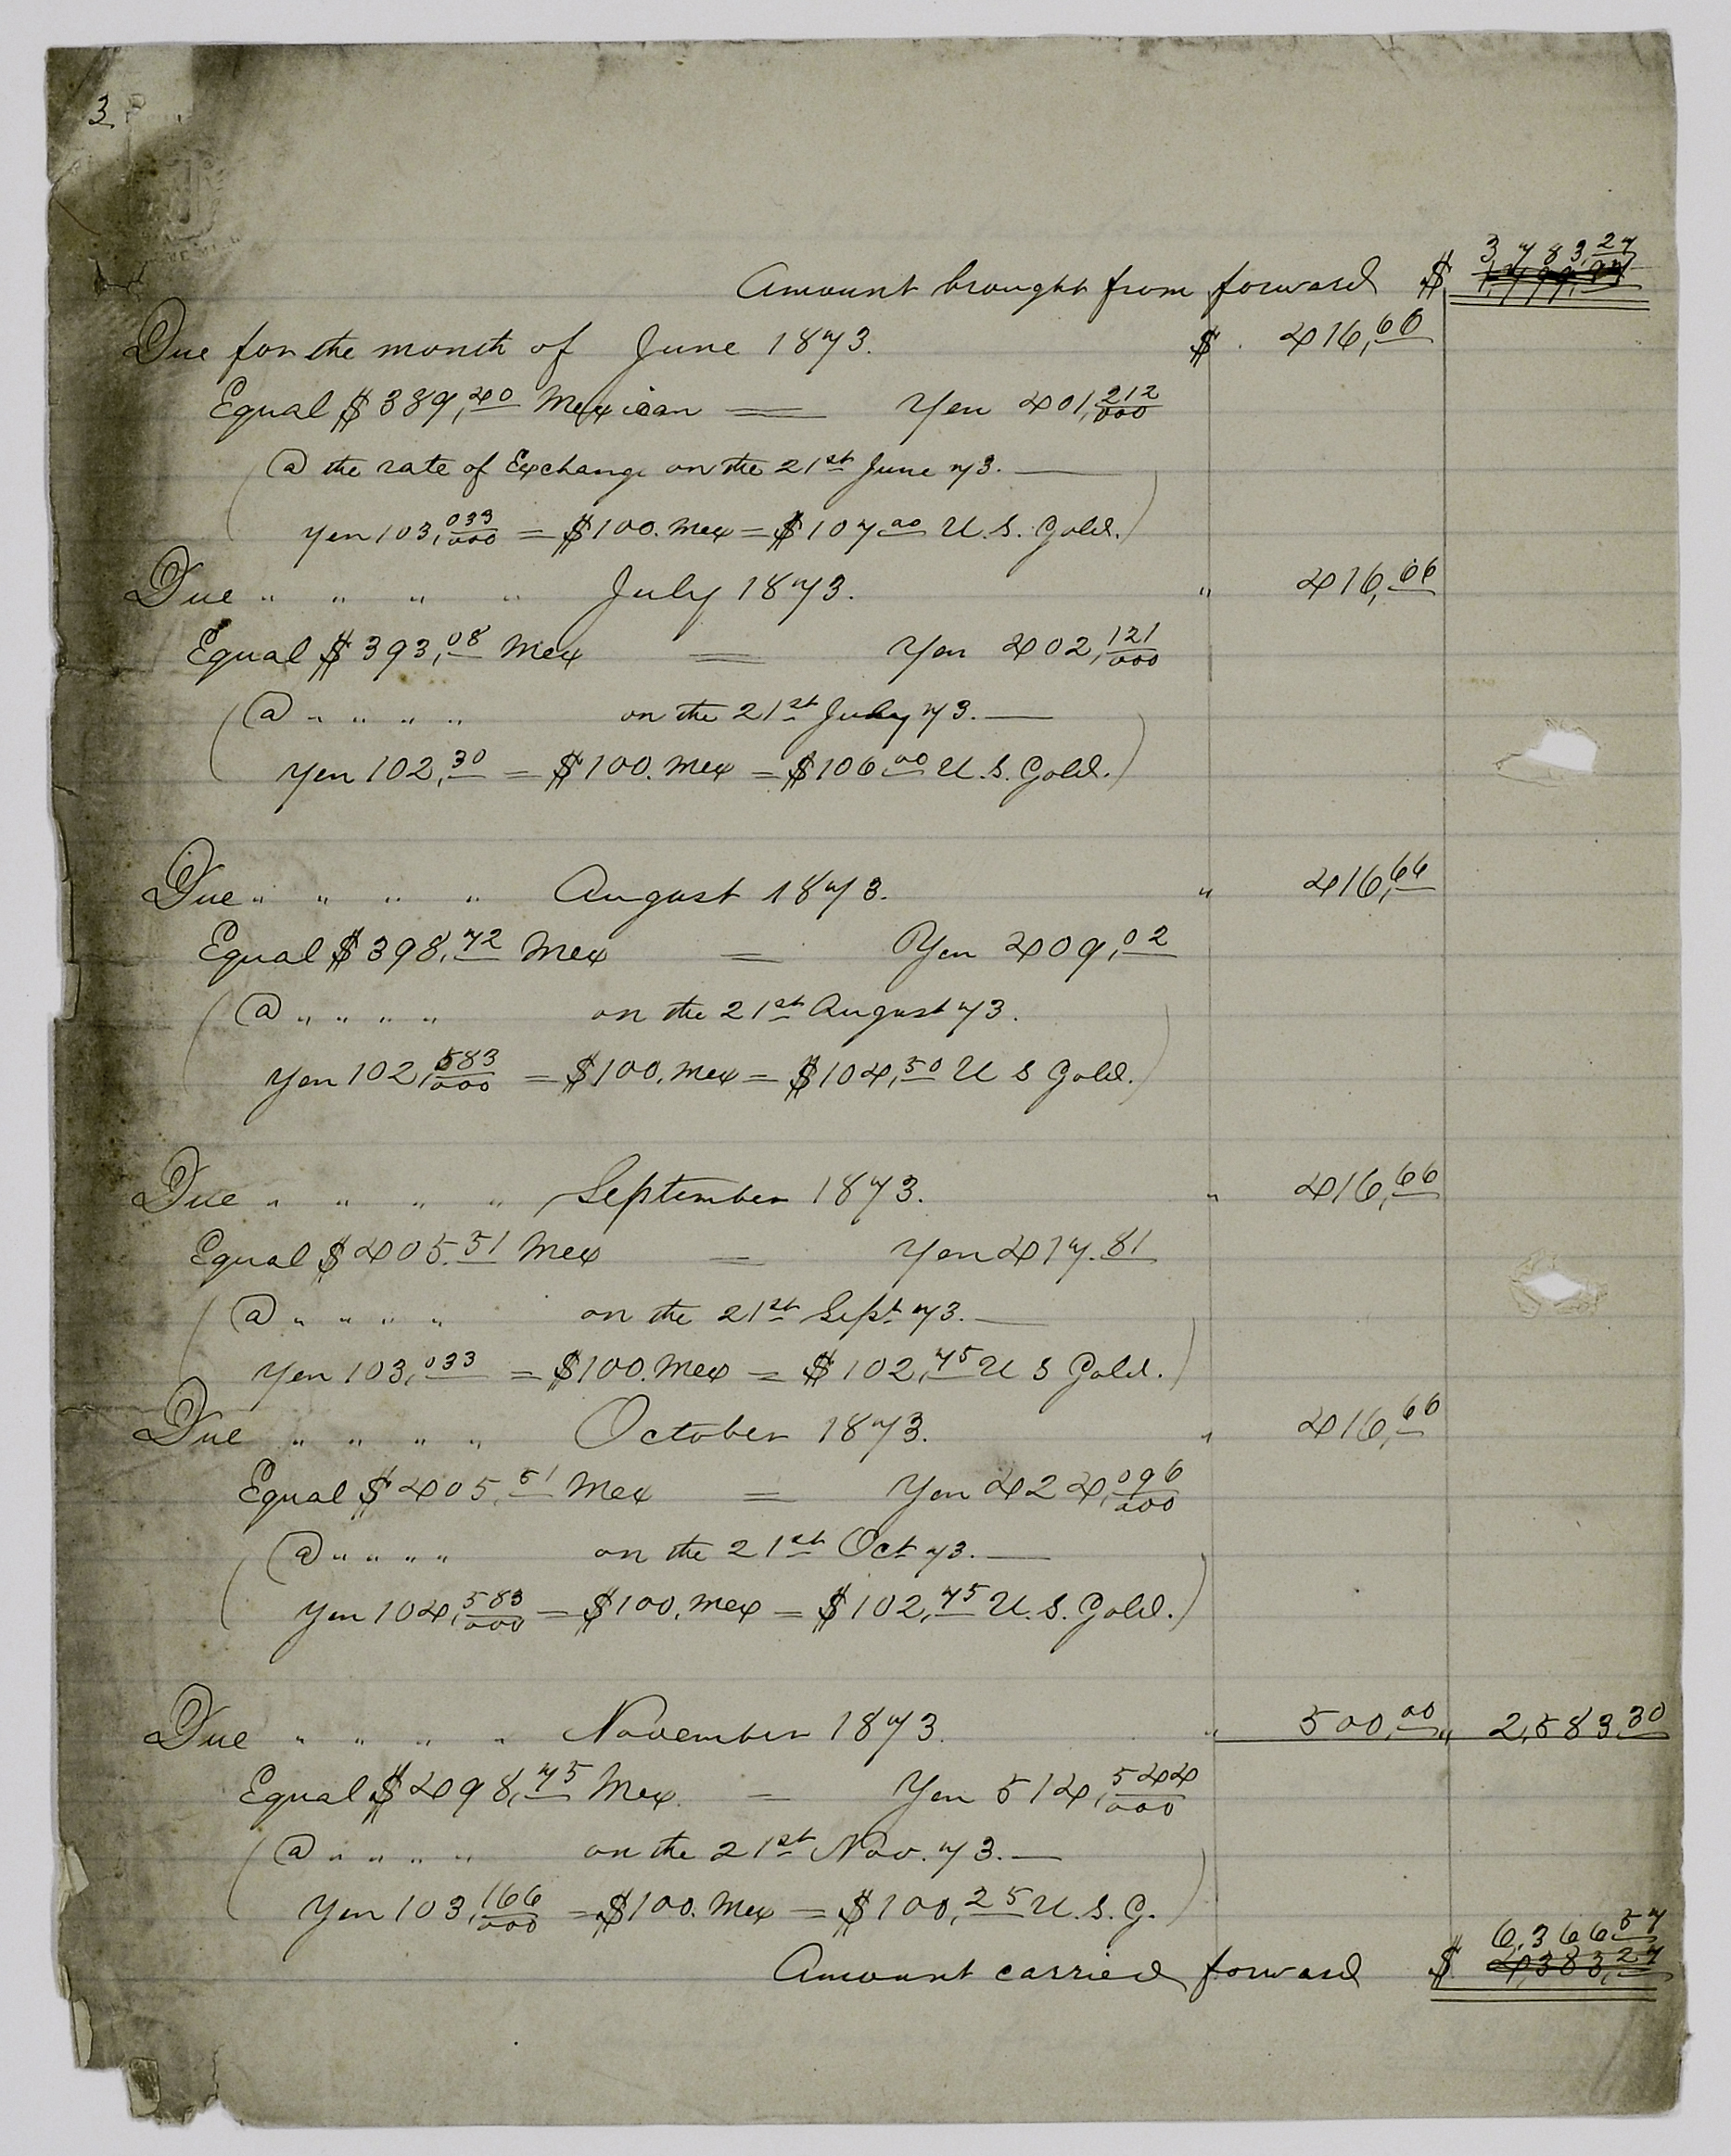 3
Amount brought from forward $ 3,783,27
Due for the month of June 1873. $ 416,66
Equal $389,40 Mexican = Yen 401,212/000
(@ the rate of Exchange on the 21st June 73.
Yen 103,033/000 = $100. Mex = $107 00 U.S. Gold.)
Due " " " " July 1873. " 416,66
Equal $393,08 Mex = Yen 402,121/000
(@ " " " " on the 21st July 73.
Yen 102,30 = $100. Mex = $106 00 U.S. Gold.)
Due " " " " August 1873. " 416,66
Equal $398,72 Mex = Yen 409,02
(@ " " " " on the 21st August 73.
Yen 102,583/000 = $100. Mex = $104,50 U S Gold.)
Due " " " " September 1873. " 416,66
Equal $405.51 Mex = Yen 417.81
(@ " " " " on the 21st Sept 73.
Yen 103,033 = $100. Mex = $102,75 U S Gold.)
Due " " " " October 1873. " 416,66
Equal $405,51 Mex = Yen 424,096/000
(@ " " " " on the 21st Oct 73.
Yen 104,583/000 = $100. Mex = $102,75 U.S. Gold.)
Due " " " " November 1873. " 500,00 " 2,583,30
Equal $498,75 Mex. = Yen 514,544/000
(@ " " " " on the 21st Nov. 73.
Yen 103,166/000 = $100. Mex = $100,25 U.S.G.)
6,366 57
Amount carried forward $ 4,383,27